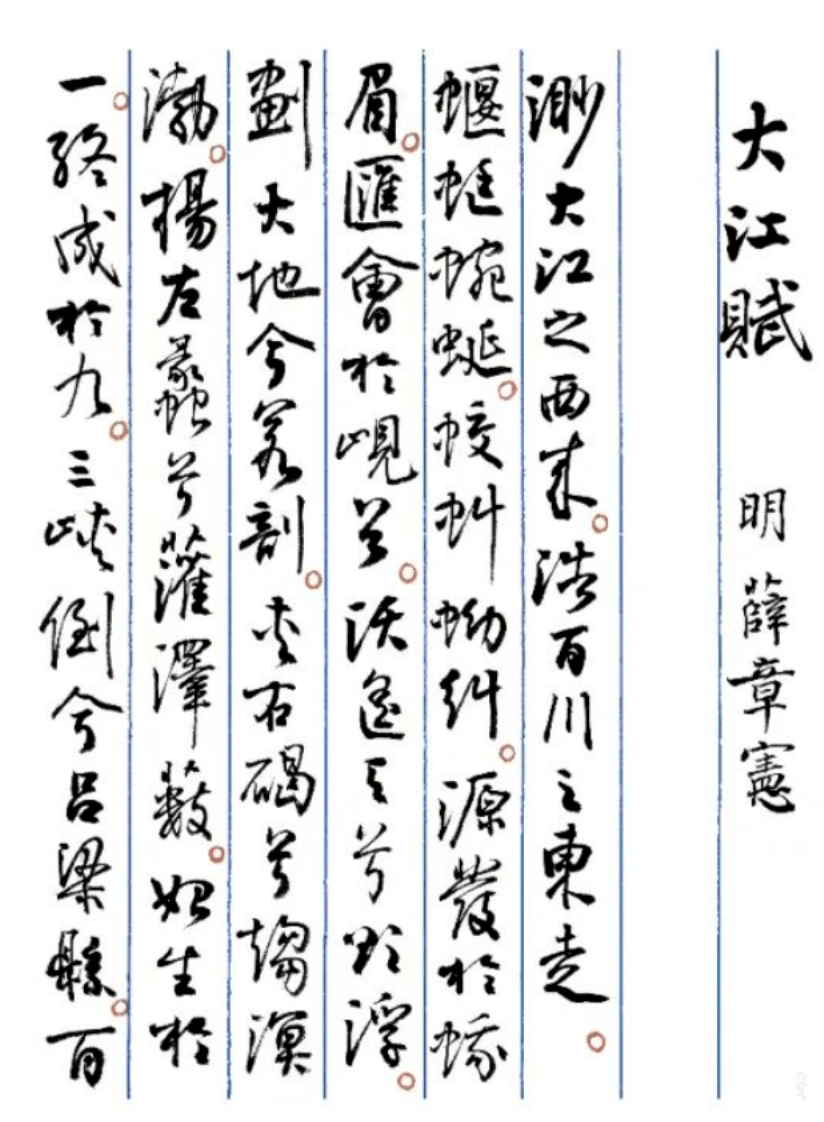 大江賦 明 薛章憲
渺大江之西來浩百川之東走
蝘蜓蜿蜒蛟虯蚴虯源發於蛾
眉匯會於峴首沃盪兮浮
劃大地兮若剖夾右碣兮趨溟
渤楊左蠡兮藋澤藪始生於
一終成於九三峽倒兮呂梁懸百